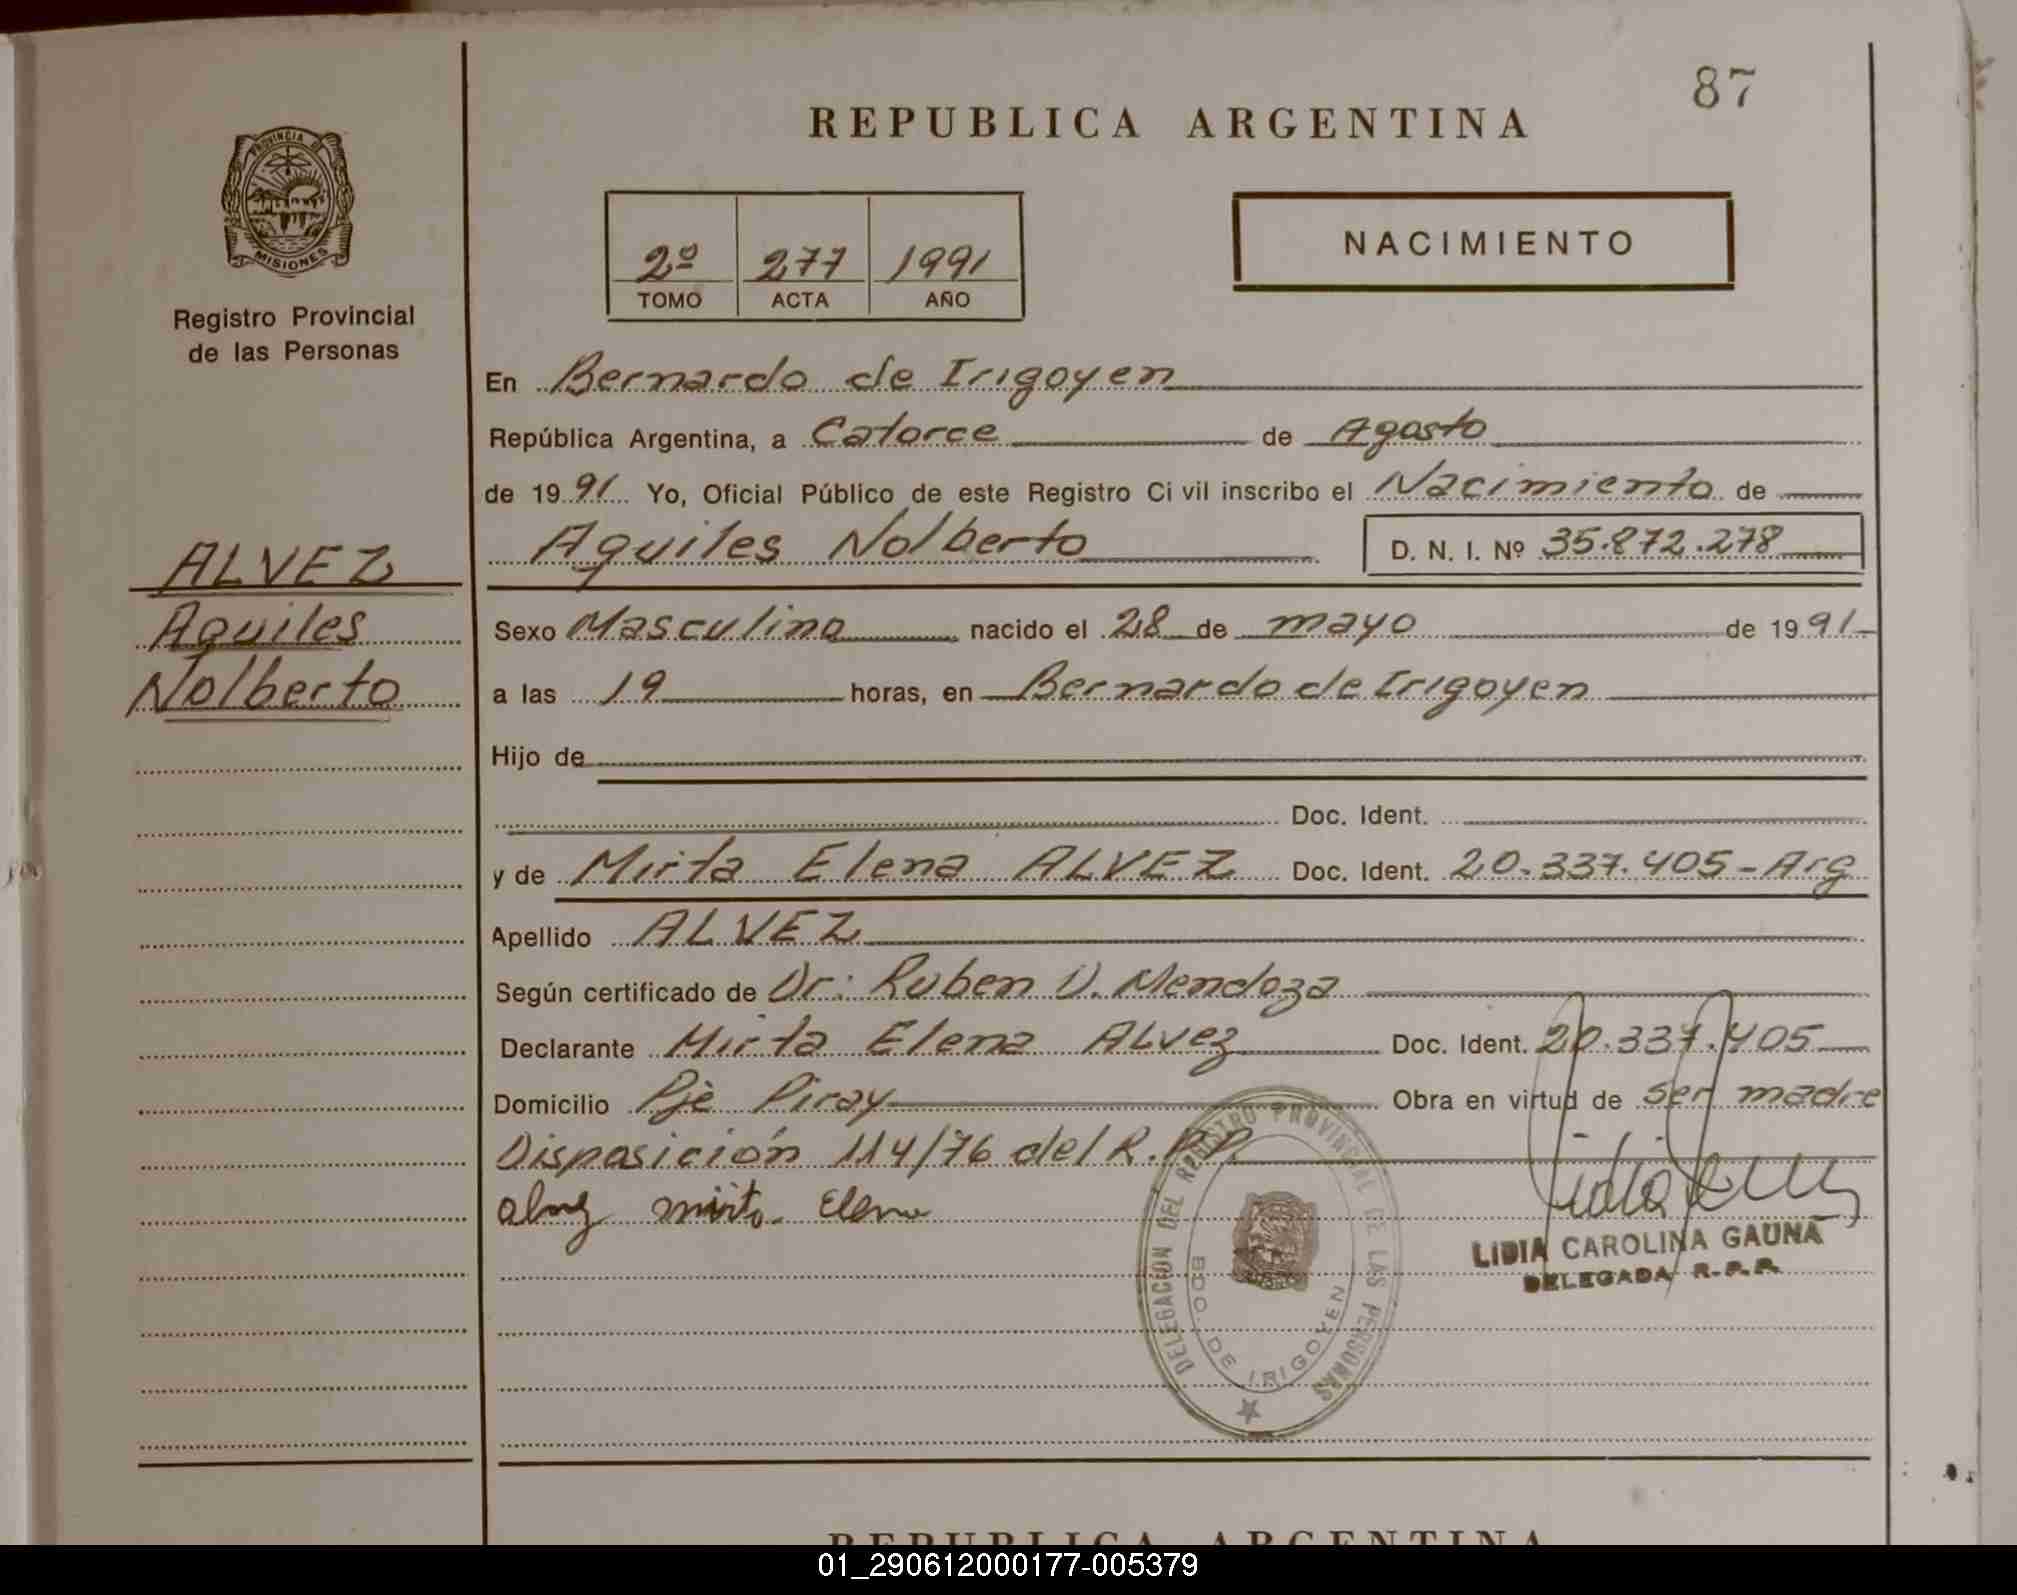 87
REPUBLICA ARGENTINA
PROVINCIA DE
MISIONES
Registro Provincial
de las Personas
2º 277 1991
TOMO ACTA AÑO
NACIMIENTO
En Bernardo de Irigoyen
República Argentina, a Catorce de Agosto
de 1991 Yo, Oficial Público de este Registro Civil inscribo el Nacimiento de
Aquiles Nolberto D. N. I. Nº 35.872.278
ALVEZ
Aquiles
Nolberto
Sexo Masculino nacido el 28 de mayo de 1991
a las 19 horas, en Bernardo de Irigoyen
Hijo de
Doc. Ident.
y de Mirta Elena ALVEZ Doc. Ident. 20.337.405-Arg
Apellido ALVEZ
Según certificado de Dr: Ruben D. Mendoza
Declarante Mirta Elena ALvez Doc. Ident. 20.337.405
Domicilio Pje Piray Obra en virtud de ser madre
Disposición 114/76 del R.P.P.
alvez mirta Elena
DELEGACION DEL REGISTRO PROVINCIAL DE LAS PERSONAS
BDO. DE IRIGOYEN
LIDIA CAROLINA GAUNA
DELEGADA R.P.P.
REPUBLICA ARGENTINA
01_290612000177-005379